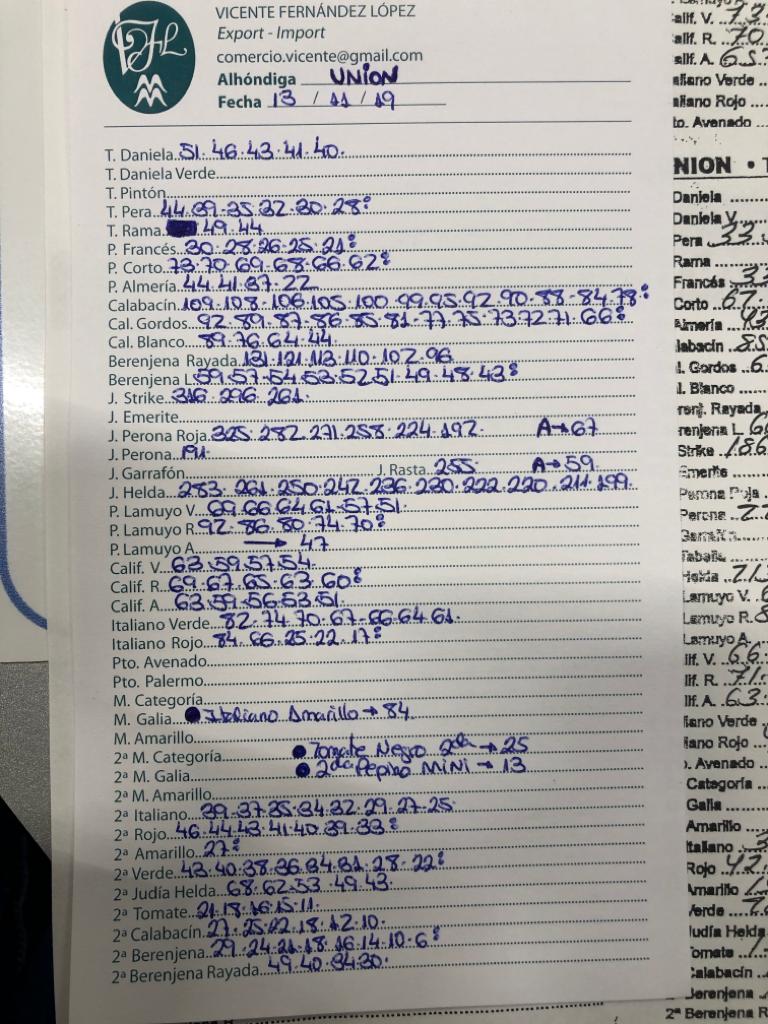 VICENTE FERNÁNDEZ LÓPEZ
Export - Import
comercio.vicente@gmail.com
Alhóndiga UNION
Fecha 13 / 11 / 19
T. Daniela 51.46.43.41.40.
T. Daniela Verde
T. Pintón
T. Pera 44.39.35.32.30.28:
T. Rama 49.44
P. Francés 30.28.26.25.21:
P. Corto 73.70.69.68.66.62:
P. Almería 44.41.37.22
Calabacín 109.108.106.105.100.99.95.92.90.88.84.78:
Cal. Gordos 92.89.87.86.85.81.77.75.73.72.71.66:
Cal. Blanco 89.76.64.44.
Berenjena Rayada 131.121.113.110.102.96
Berenjena L. 59.57.54.53.52.51.49.48.43:
J. Strike 316.296.261.
J. Emerite
J. Perona Roja 325.282.271.258.224.192. A→67
J. Perona
J. Garrafón J. Rasta 255. A→59
J. Helda 283.261.250.242.236.230.222.220.211.199.
P. Lamuyo V. 69.66.64.61.57.51.
P. Lamuyo R. 92.86.80.74.70:
P. Lamuyo A. → 47
Calif. V. 63.59.57.54.
Calif. R. 69.67.65.63.60:
Calif. A. 63.59.56.53.51.
Italiano Verde 82.74.70.67.66.64.61.
Italiano Rojo 84.66.25.22.17:
Pto. Avenado
Pto. Palermo
M. Categoría
M. Galia Italiano Amarillo → 84
M. Amarillo
2ª M. Categoría Tomate Negro 2da → 25
2ª M. Galia 2da Pepino MiNi → 13
2ª M. Amarillo
2ª Italiano 39.37.35.34.32.29.27.25.
2ª Rojo 46.44.43.41.40.39.33:
2ª Amarillo 27:
2ª Verde 43.40.38.36.34.31.28.22:
2ª Judía Helda 68.62.53.49.43.
2ª Tomate 21.18.16.15.11.
2ª Calabacín 27.25.22.18.12.10.
2ª Berenjena 29.24.21.18.16.14.10.6:
2ª Berenjena Rayada 49.40.34.30.
alif. V. 73
alif. R. 70
alif. A.
aliano Verde
aliano Rojo
to. Avenado
NION •
Daniela
Daniela V.
Pera 33
Rama
Francés
Corto 67
Almería
labacín
l. Gordos
l. Blanco
renj. Rayada
renjena L.
Strike 186
Emerite
Perona Roja
Perona
Helda
Lamuyo V.
Lamuyo R.
Lamuyo A.
lif. V. 66
lif. R. 71
lif. A. 63
liano Verde
liano Rojo
. Avenado
Categoría
Galia
Amarillo
Italiano
Rojo 42
Amarillo
Verde
Judía Helda
Tomate
Calabacín
Berenjena
2ª Berenjena R